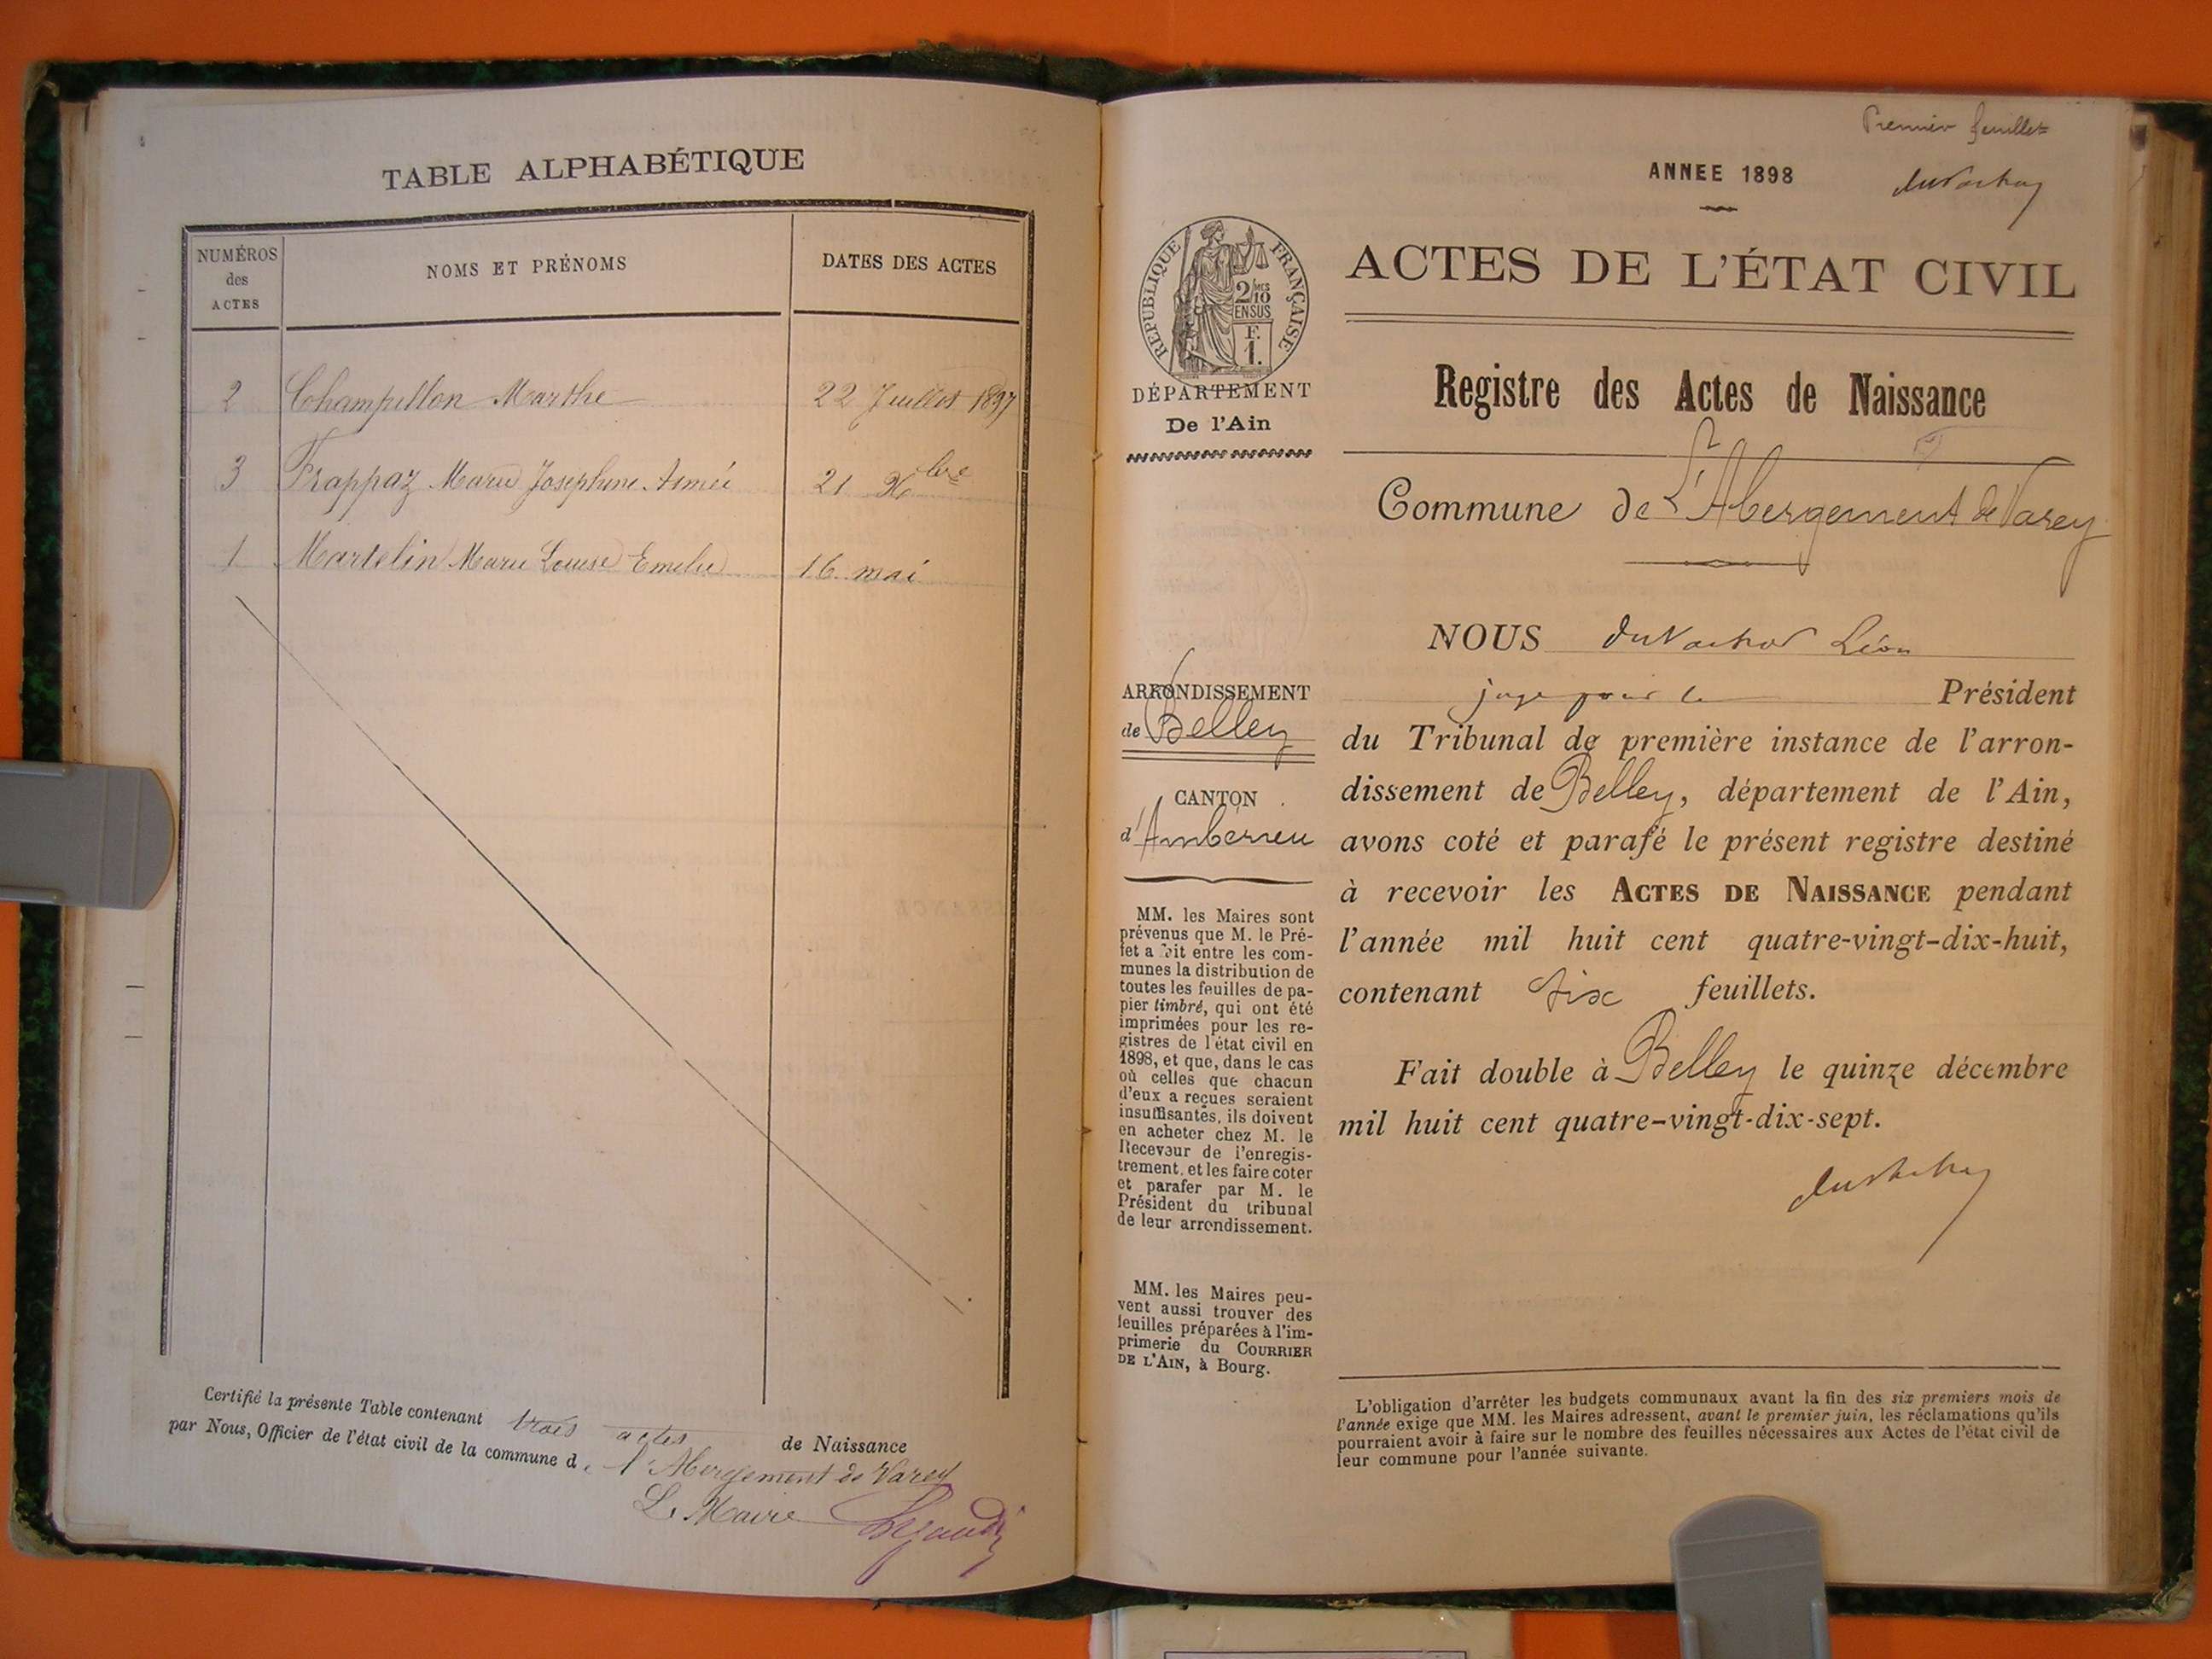 TABLE ALPHABÉTIQUE
NUMÉROS
des
ACTES
NOMS ET PRÉNOMS
DATES DES ACTES
2 Champillon Marthe 22 Juillet 1897
3 Frappaz Marie Joséphine Aimée 21 Xbre
1 Martelin Marie Louise Emelie 16 mai
Certifié la présente Table contenant trois actes de Naissance
par Nous, Officier de l'état civil de la commune d l'Abergement de Varey
Le Maire
Premier feuillet
ANNEE 1898
RÉPUBLIQUE FRANÇAISE
2/10
EN SUS
F.
1.
DÉPARTEMENT
De l'Ain
ARRONDISSEMENT
de Belley
CANTON
d'Amberieu
MM. les Maires sont
prévenus que M. le Pré-
fet a fait entre les com-
munes la distribution de
toutes les feuilles de pa-
pier timbré, qui ont été
imprimées pour les re-
gistres de l'état civil en
1898, et que, dans le cas
où celles que chacun
d'eux a reçues seraient
insuffisantes, ils doivent
en acheter chez M. le
Receveur de l'enregis-
trement, et les faire coter
et parafer par M. le
Président du tribunal
de leur arrondissement.
MM. les Maires peu-
vent aussi trouver des
feuilles préparées à l'im-
primerie du COURRIER
DE L'AIN, à Bourg.
ACTES DE L'ÉTAT CIVIL
Registre des Actes de Naissance
Commune de L'Abergement de Varey
NOUS Léon
juge pour le Président
du Tribunal de première instance de l'arron-
dissement de Belley, département de l'Ain,
avons coté et parafé le présent registre destiné
à recevoir les ACTES DE NAISSANCE pendant
l'année mil huit cent quatre-vingt-dix-huit,
contenant six feuillets.
Fait double à Belley le quinze décembre
mil huit cent quatre-vingt-dix-sept.
L'obligation d'arrêter les budgets communaux avant la fin des six premiers mois de
l'année exige que MM. les Maires adressent, avant le premier juin, les réclamations qu'ils
pourraient avoir à faire sur le nombre des feuilles nécessaires aux Actes de l'état civil de
leur commune pour l'année suivante.